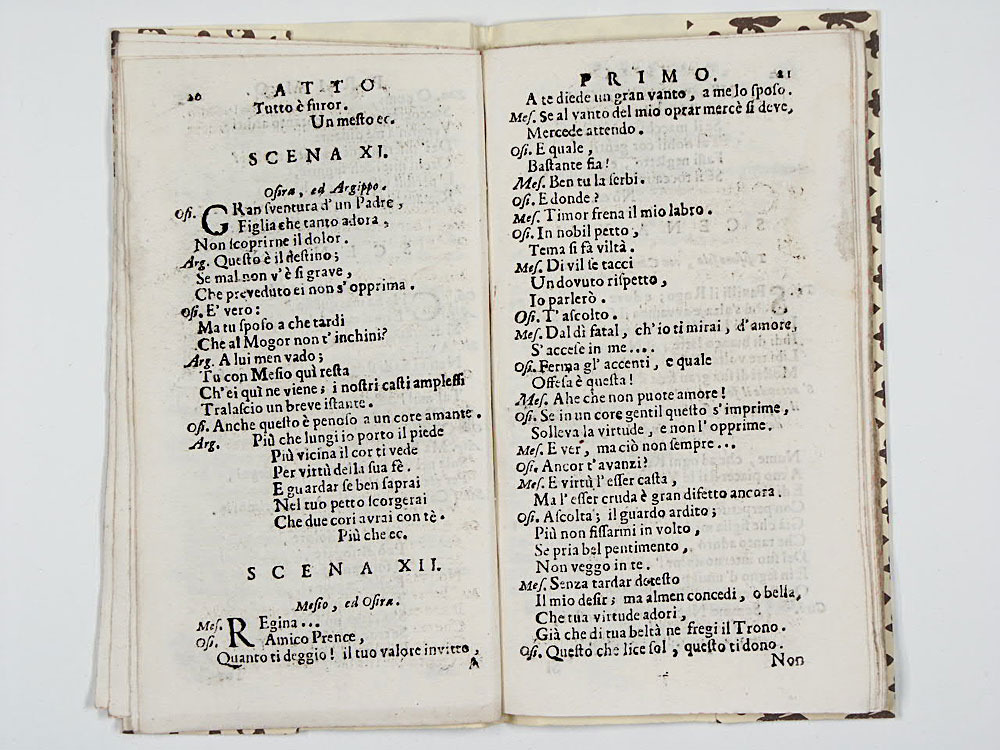 20 ATTO
Tutto è furor.
Un mesto ec.
SCENA XI.
Osira, ed Argippo.
Osi. GRan sventura d' un Padre,
Figlia che tanto adora,
Non scoprirne il dolor.
Arg. Questo è il destino;
Se mal non v'è sì grave,
Che preveduto ei non s'opprima.
Osi. E' vero:
Ma tu sposo a che tardi
Che al Mogor non t' inchini?
Arg. A lui men vado;
Tu con Mesio quì resta
Ch'ei quì ne viene; i nostri casti amplessi
Tralascio un breve istante.
Osi. Anche questo è penoso a un core amante.
Arg. Più che lungi io porto il piede
Più vicina il cor ti vede
Per virtù della sua fè.
E guardar se ben saprai
Nel tuo petto scorgerai
Che due cori avrai con tè.
Più che ec.
SCENA XII.
Mesio, ed Osira.
Mes. REgina...
Osi. Amico Prence,
Quanto ti deggio! il tuo valore invitto,
A
PRIMO. 21
A te diede un gran vanto, a me lo sposo.
Mes. Se al vanto del mio oprar mercè si deve,
Mercede attendo.
Osi. E quale,
Bastante fia!
Mes. Ben tu la serbi.
Osi. E donde?
Mes. Timor frena il mio labro.
Osi. In nobil petto,
Tema si fà viltà.
Mes. Di vil se tacci
Un dovuto rispetto,
Io parlerò.
Osi. T' ascolto.
Mes. Dal dì fatal, ch'io ti mirai, d'amore,
S' accese in me....
Osi. Ferma gl' accenti, e quale
Offesa è questa!
Mes. Ahe che non puote amore!
Osi. Se in un core gentil questo s' imprime,
Solleva la virtude, e non l' opprime.
Mes. E ver, ma ciò non sempre...
Osi. Ancor t'avanzi?
Mes. E virtù l' esser casta,
Ma l' esser cruda è gran difetto ancora.
Osi. Ascolta; il guardo ardito;
Più non fissarmi in volto,
Se pria bel pentimento,
Non veggo in te.
Mes. Senza tardar detesto
Il mio desir; ma almen concedi, o bella,
Che tua virtude adori,
Già che di tua beltà ne fregi il Trono.
Osi. Questo che lice sol, questo ti dono.
Non